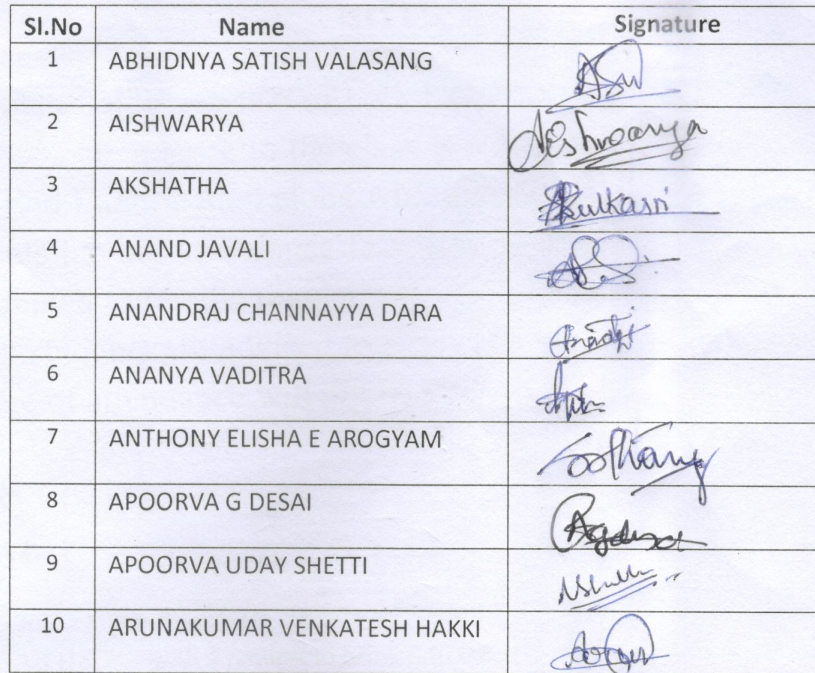 Sl.No Name Signature
1 ABHIDNYA SATISH VALASANG
2 AISHWARYA Aishwarya
3 AKSHATHA Kulkarni
4 ANAND JAVALI
5 ANANDRAJ CHANNAYYA DARA
6 ANANYA VADITRA
7 ANTHONY ELISHA E AROGYAM
8 APOORVA G DESAI
9 APOORVA UDAY SHETTI
10 ARUNAKUMAR VENKATESH HAKKI